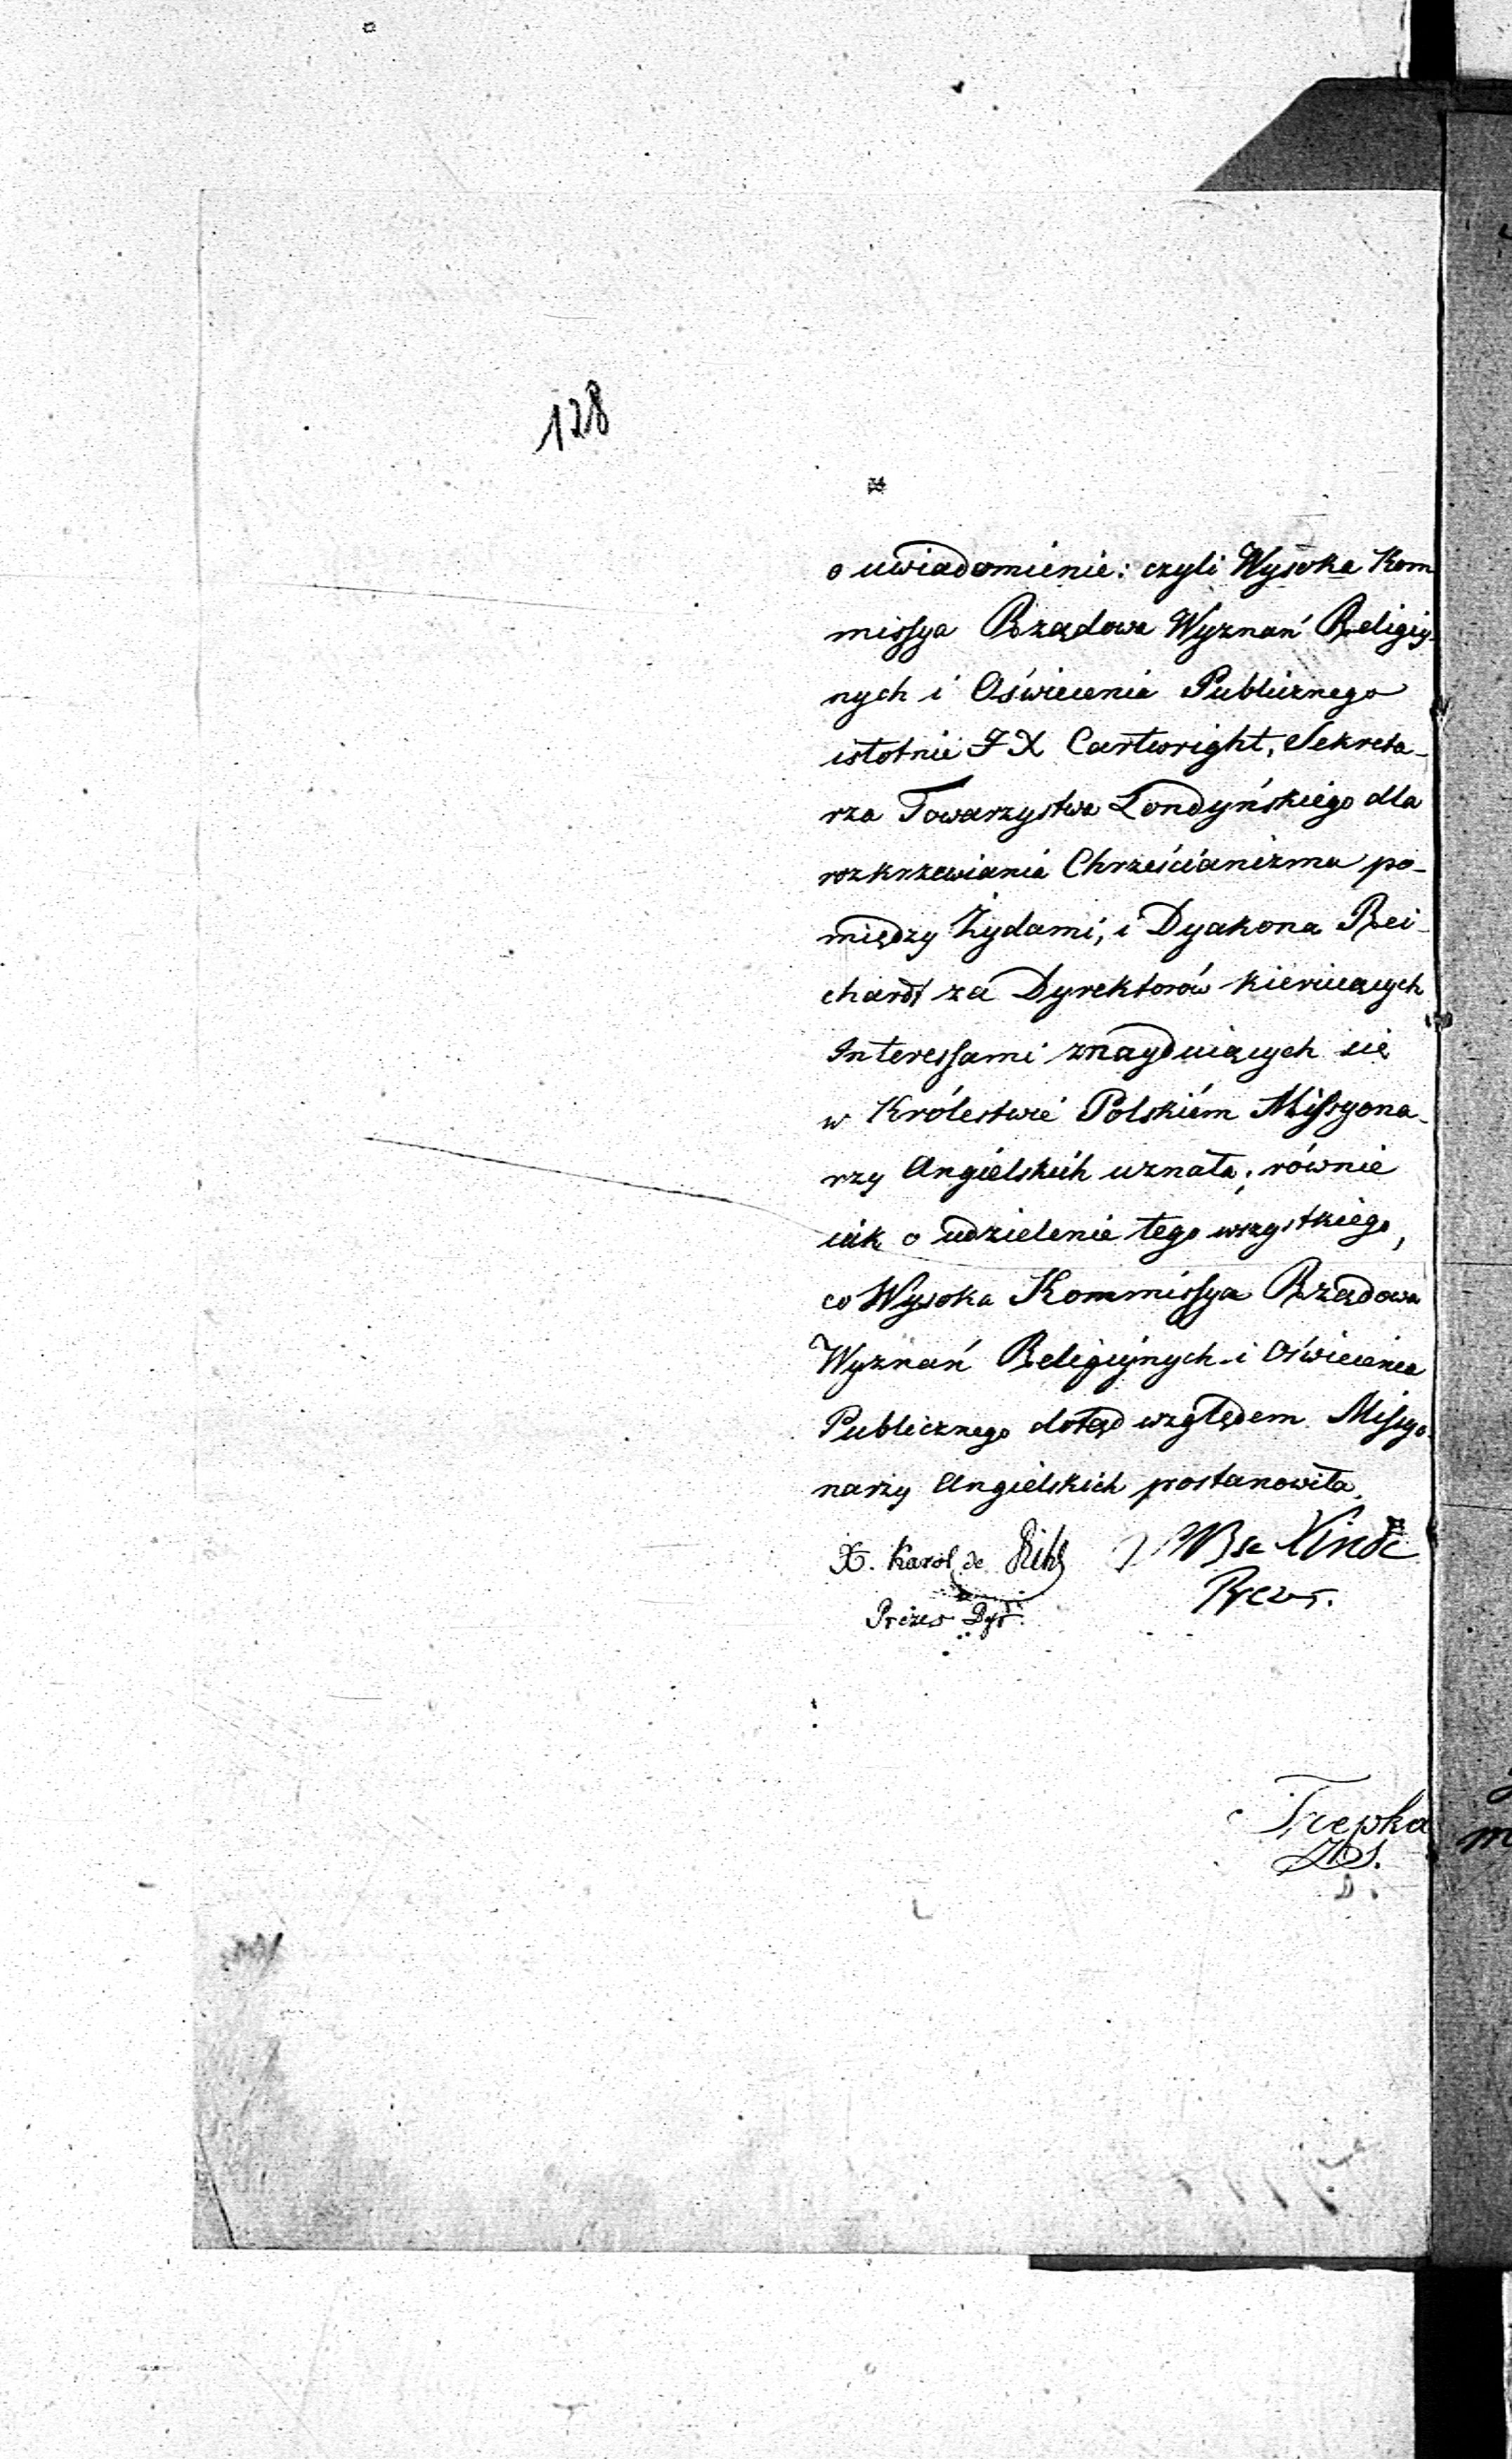 128
o uwiadomienie: czyli Wysoka Kom
missya Rządowa Wyznań Religiy-
nych i Oświecenia Publicznego
istotnie JX Cartwright, Sekreta-
rza Towarzystwa Londyńskiego dla
rozkrzewiania Chrześcianizma po-
między Żydami, i Dyakona Rei-
chardt za Dyrektorów kieruiących
Interessami znayduiących się
w Królestwie Polskiém Missyona-
rzy Angielskich uznała; równie
iak o udzielenie tego wszystkiego,
co Wysoka Kommissya Rządowa
Wyznań Religiynych i Oświecenia
Publicznego dotąd względem Missyo-
narzy Angielskich postanowiła.
X. Karol de
Prezes Dyr.
Trepka